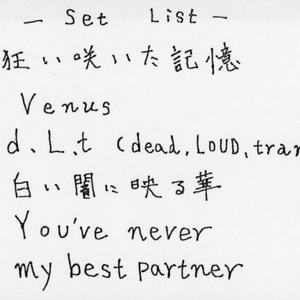 — Set List —
狂い咲いた記憶
Venus
d.L.t (dead, LOUD, tran
白い闇に映る華
You've never
my best partner